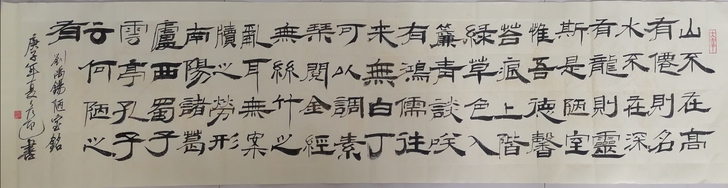 山不在高
有僊則名
水不在深
有龍則靈
斯是陋室
惟吾德馨
苔痕上階
綠草色入
簾青談咲
有鴻儒往
来無白丁
可以調素
琴閱金經
無絲竹之
亂耳無案
牘之勞形
南陽諸葛
廬西蜀子
雲亭孔子
云何陋之
有
劉禹錫陋室銘
庚子年夏書